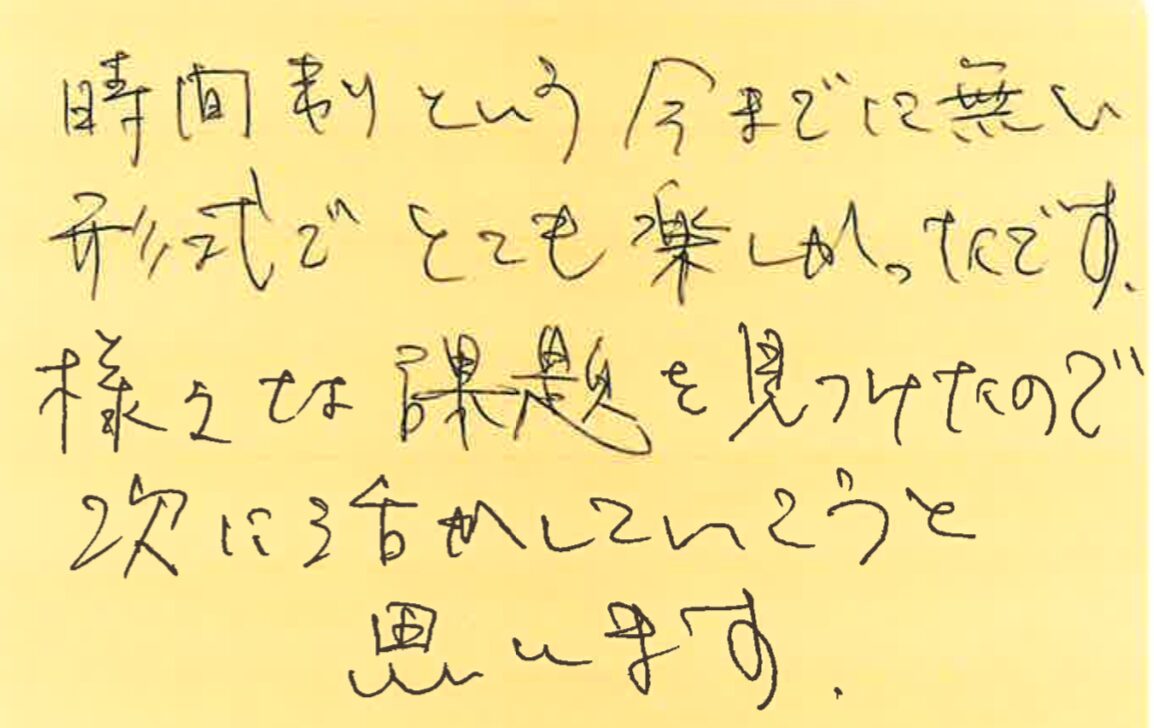 時間制という今までに無い
形式でとても楽しかったです.
様々な課題を見つけたので
次に活かしていこうと
思います.